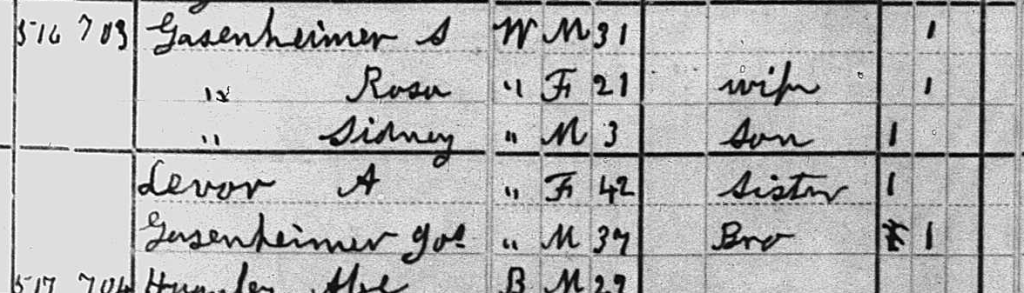 516 703 Gasenheimer S W M 31 1
" Rosa " F 21 wife 1
" Sidney " M 3 Son 1
Levor A " F 42 Sister 1
Gasenheimer Jos " M 37 Bro 1
517 704 B M